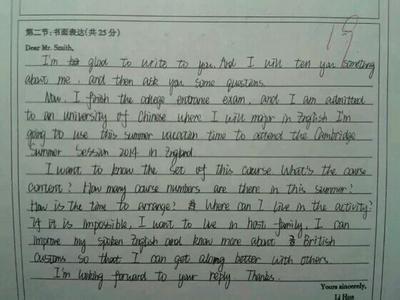 第二节:书面表达(共25分)
19
Dear Mr. Smith,
I'm glad to write to you. And I will tell you something
about me, and then ask you some questions.
Now, I finish the college entrance exam, and I am admitted
to an university of Chinese where I will major in English I'm
going to use this summer vacation time to attend the Cambridge
Summer Session 2014 in England
I want to know the set of this course. What's the course
content? How many course numbers are there in this summer?
How is the time to arrange? Where can I live in the activity?
If it is impossible, I want to live in host family, I can
improve my spoken English and know more about British
customs so that I can get along better with others.
I'm looking forward to your reply Thanks.
Yours sincerely,
Li Hua